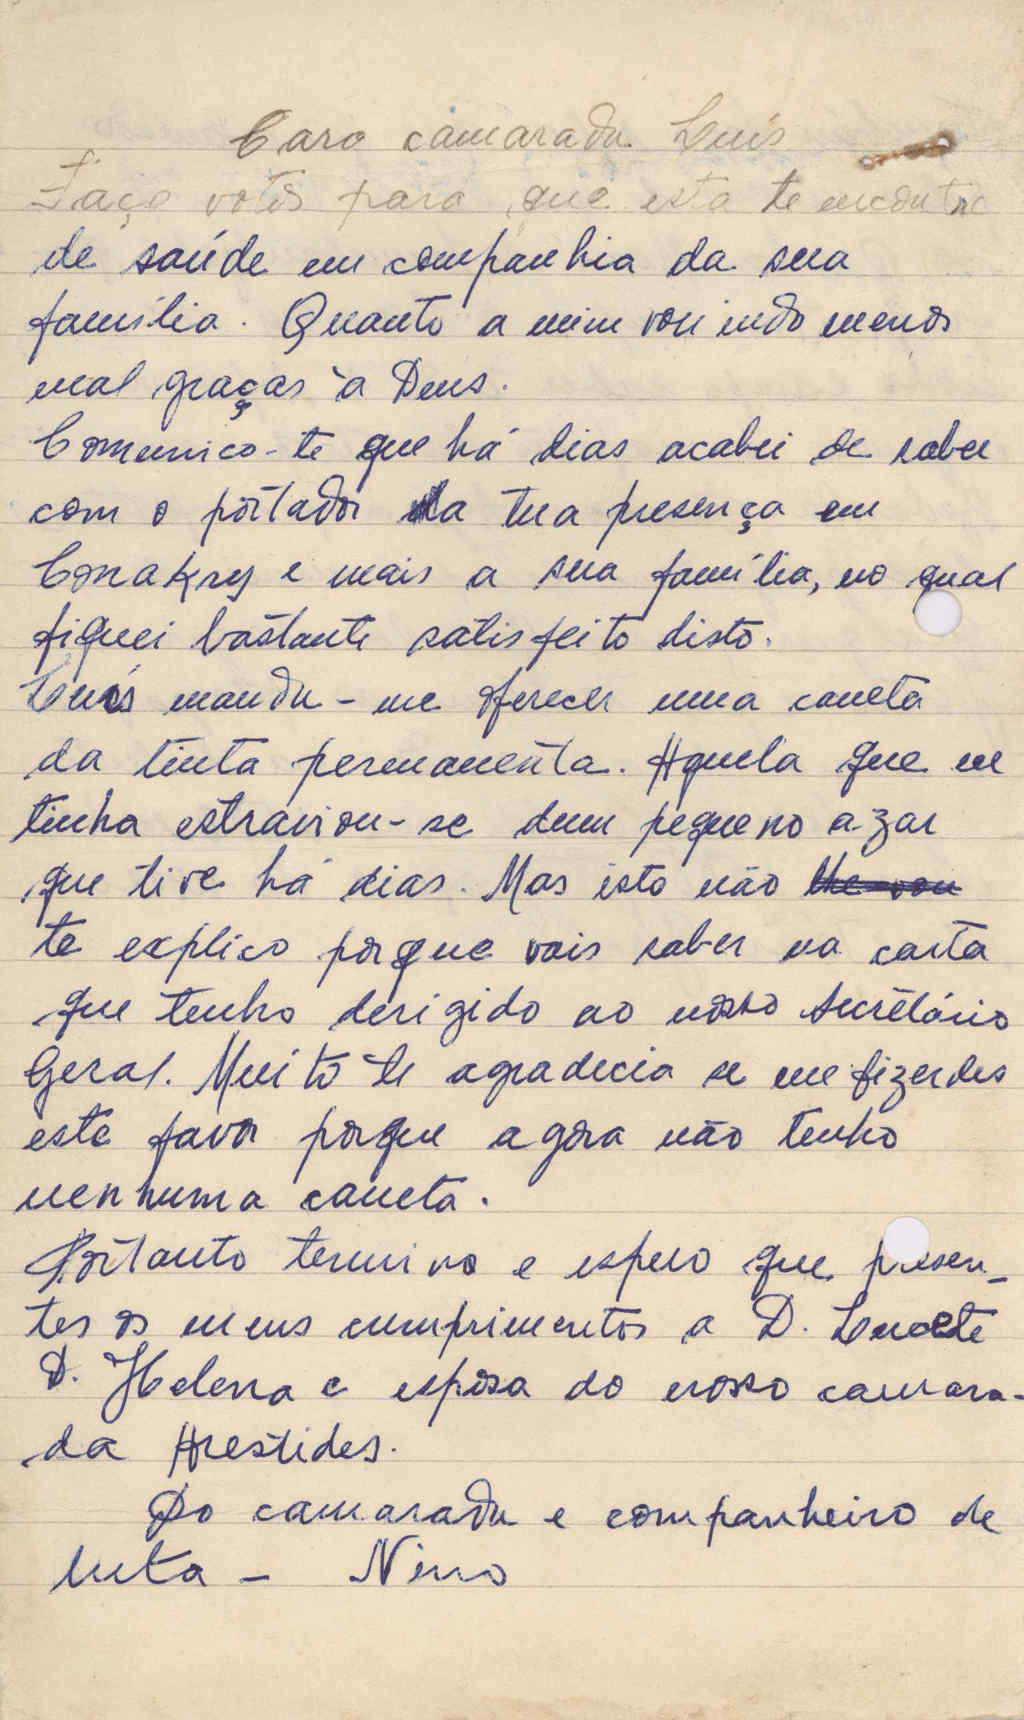 Caro camarada Luís
Faço votos para que esta te encontre
de saúde em companhia da sua
família. Quanto a mim vou indo menos
mal graças à Deus.
Comunico-te que há dias acabei de saber
com o portador da tua presença em
Conakry e mais a sua família, no qual
fiquei bastante satisfeito disto.
Luís manda-me oferecer uma caneta
da tinta permanenta. Aquela que me
tinha estraviou-se dum pequeno azar
que tive há dias. Mas isto não lhe vou
te explico porque vais saber na carta
que tenho derigido ao nosso Secretário
Geral. Muito te agradecia se me fizerdes
este favor porque agora não tenho
nenhuma caneta.
Portanto termino e espero que presen-
tes os meus cumprimentos a D. Lucete
D. Helena e esposa do nosso camara-
da Arestides.
Do camarada e companheiro de
luta - Nino